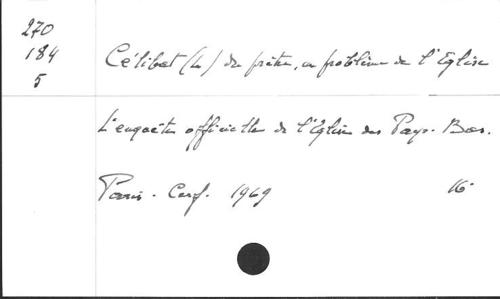 270
184
5
Célibat (Le) du prêtre, un problème de l'Eglise
L'enquête officielle de l'Eglise des Pays-Bas.
Paris - Cerf. 1969 16°